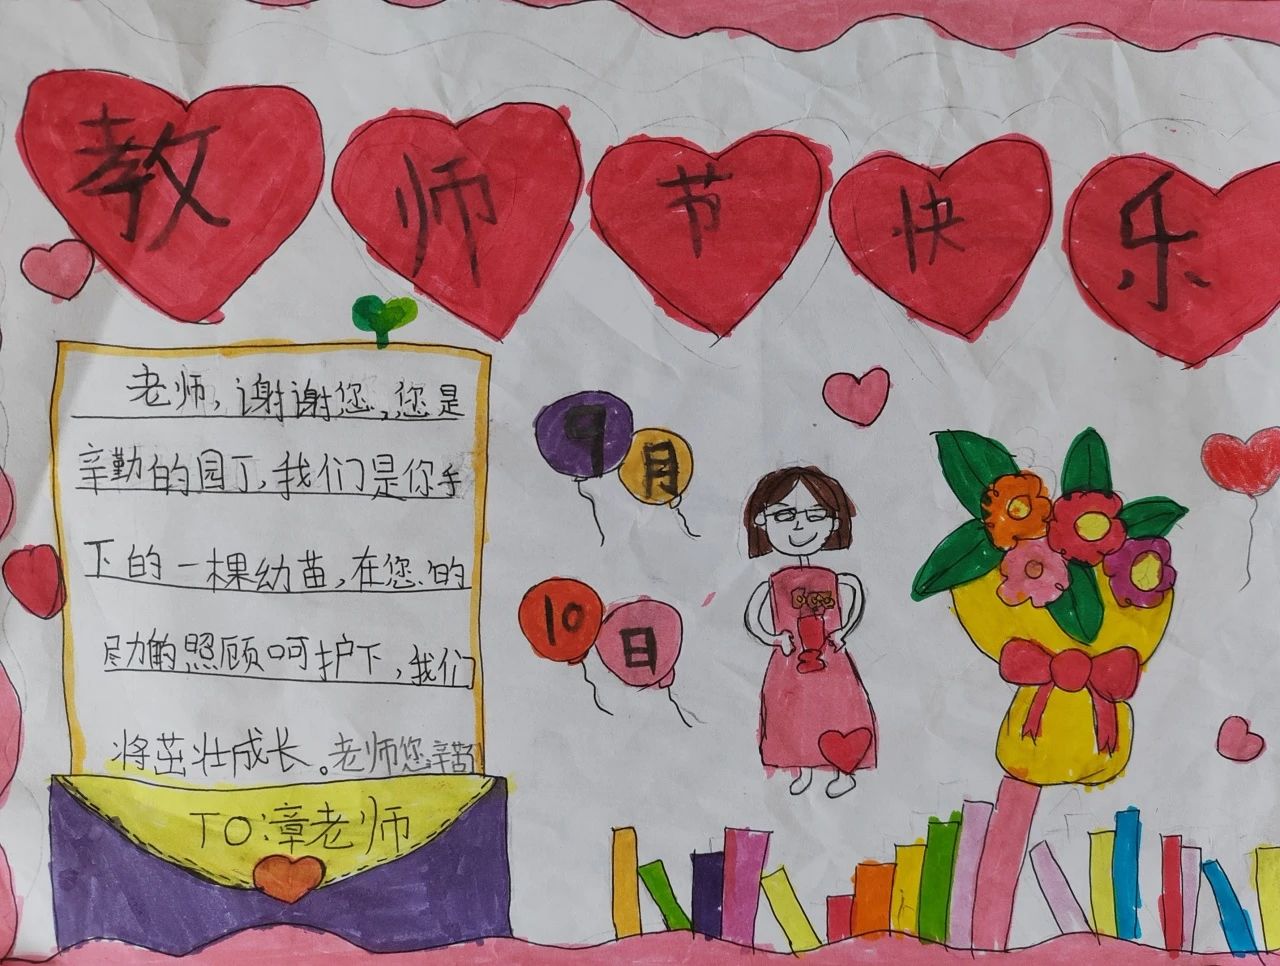 教师节快乐
老师，谢谢您，您是
辛勤的园丁，我们是你手
下的一棵幼苗，在您的
照顾呵护下，我们
将茁壮成长。老师您辛苦
TO:章老师
9月
10日